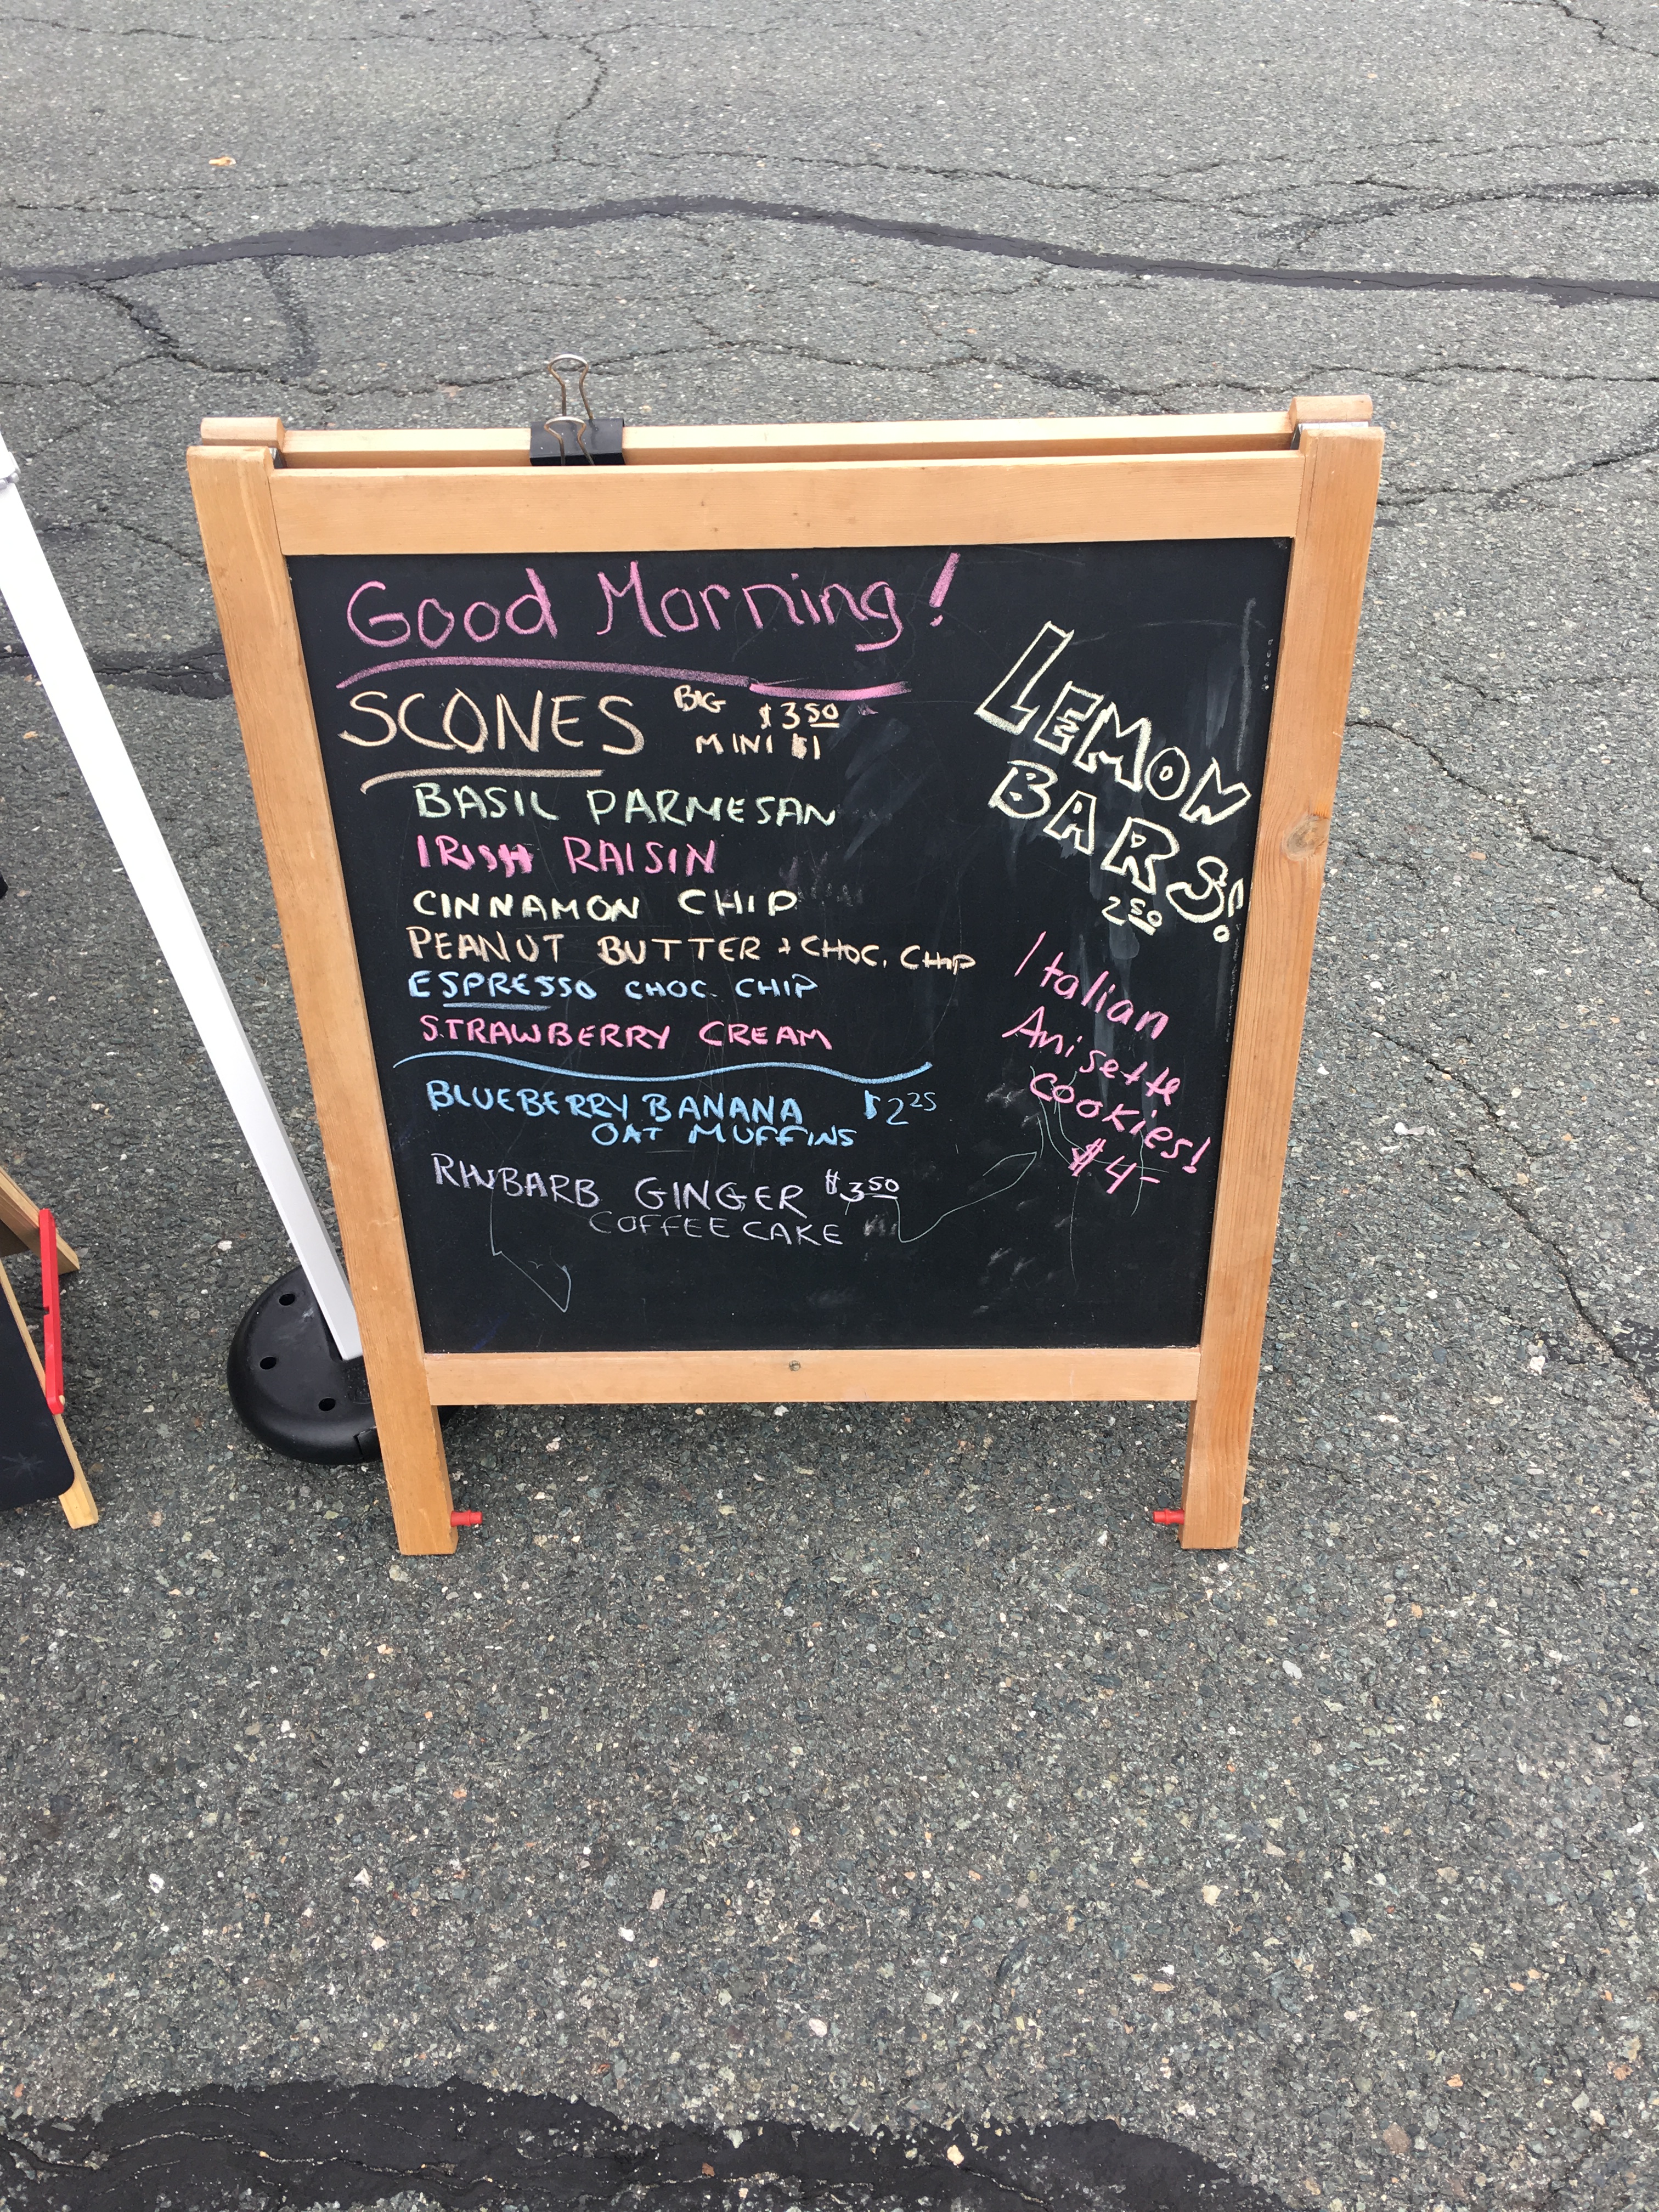 Good Morning!
SCONES BIG $3.50
MINI $1
BASIL PARMESAN
IRISH RAISIN
CINNAMON CHIP
PEANUT BUTTER + CHOC. CHIP
ESPRESSO CHOC. CHIP
STRAWBERRY CREAM
BLUEBERRY BANANA $2.25
OAT MUFFINS
RHUBARB GINGER $3.50
COFFEE CAKE
LEMON
BARS!
2.50
Italian
Anisette
cookies!
$4-